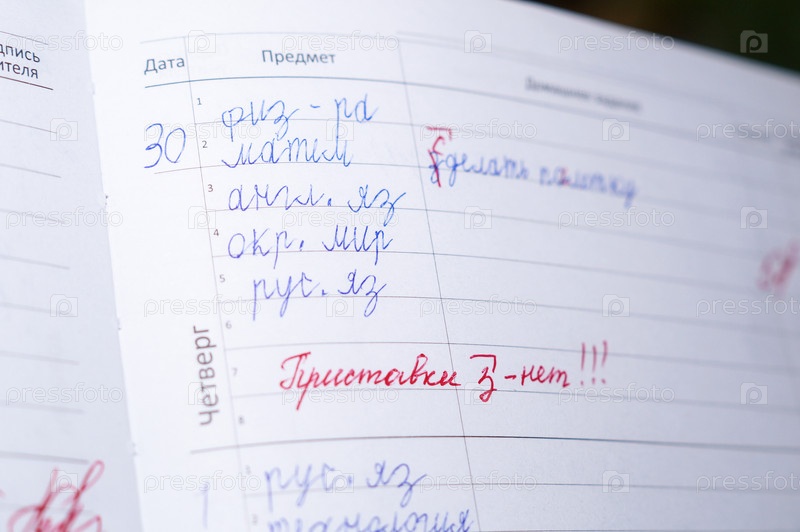 дпись
ителя
Дата
Предмет
Домашнее задание
30
Четверг
1 физ-ра
2 матем
Сделать памятку
3 англ. яз
4 окр. мир
5 рус. яз
6
7 Приставки з-нет!!!
8
1 рус. яз
2 технология
pressfoto